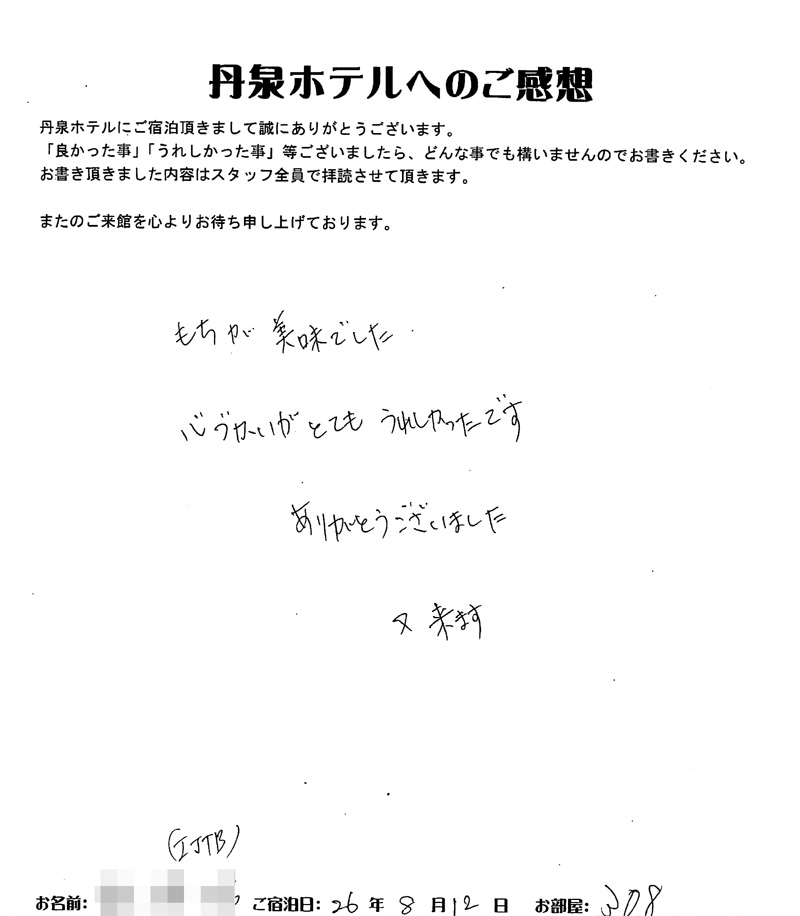 丹泉ホテルへのご感想
丹泉ホテルにご宿泊頂きまして誠にありがとうございます。
「良かった事」「うれしかった事」等ございましたら、どんな事でも構いませんのでお書きください。
お書き頂きました内容はスタッフ全員で拝読させて頂きます。
またのご来館を心よりお待ち申し上げております。
もちが美味でした
心づかいがとてもうれしかったです
ありがとうございました
又来ます
(IJTB)
お名前: ご宿泊日: 26 年 8 月 12 日 お部屋: 308